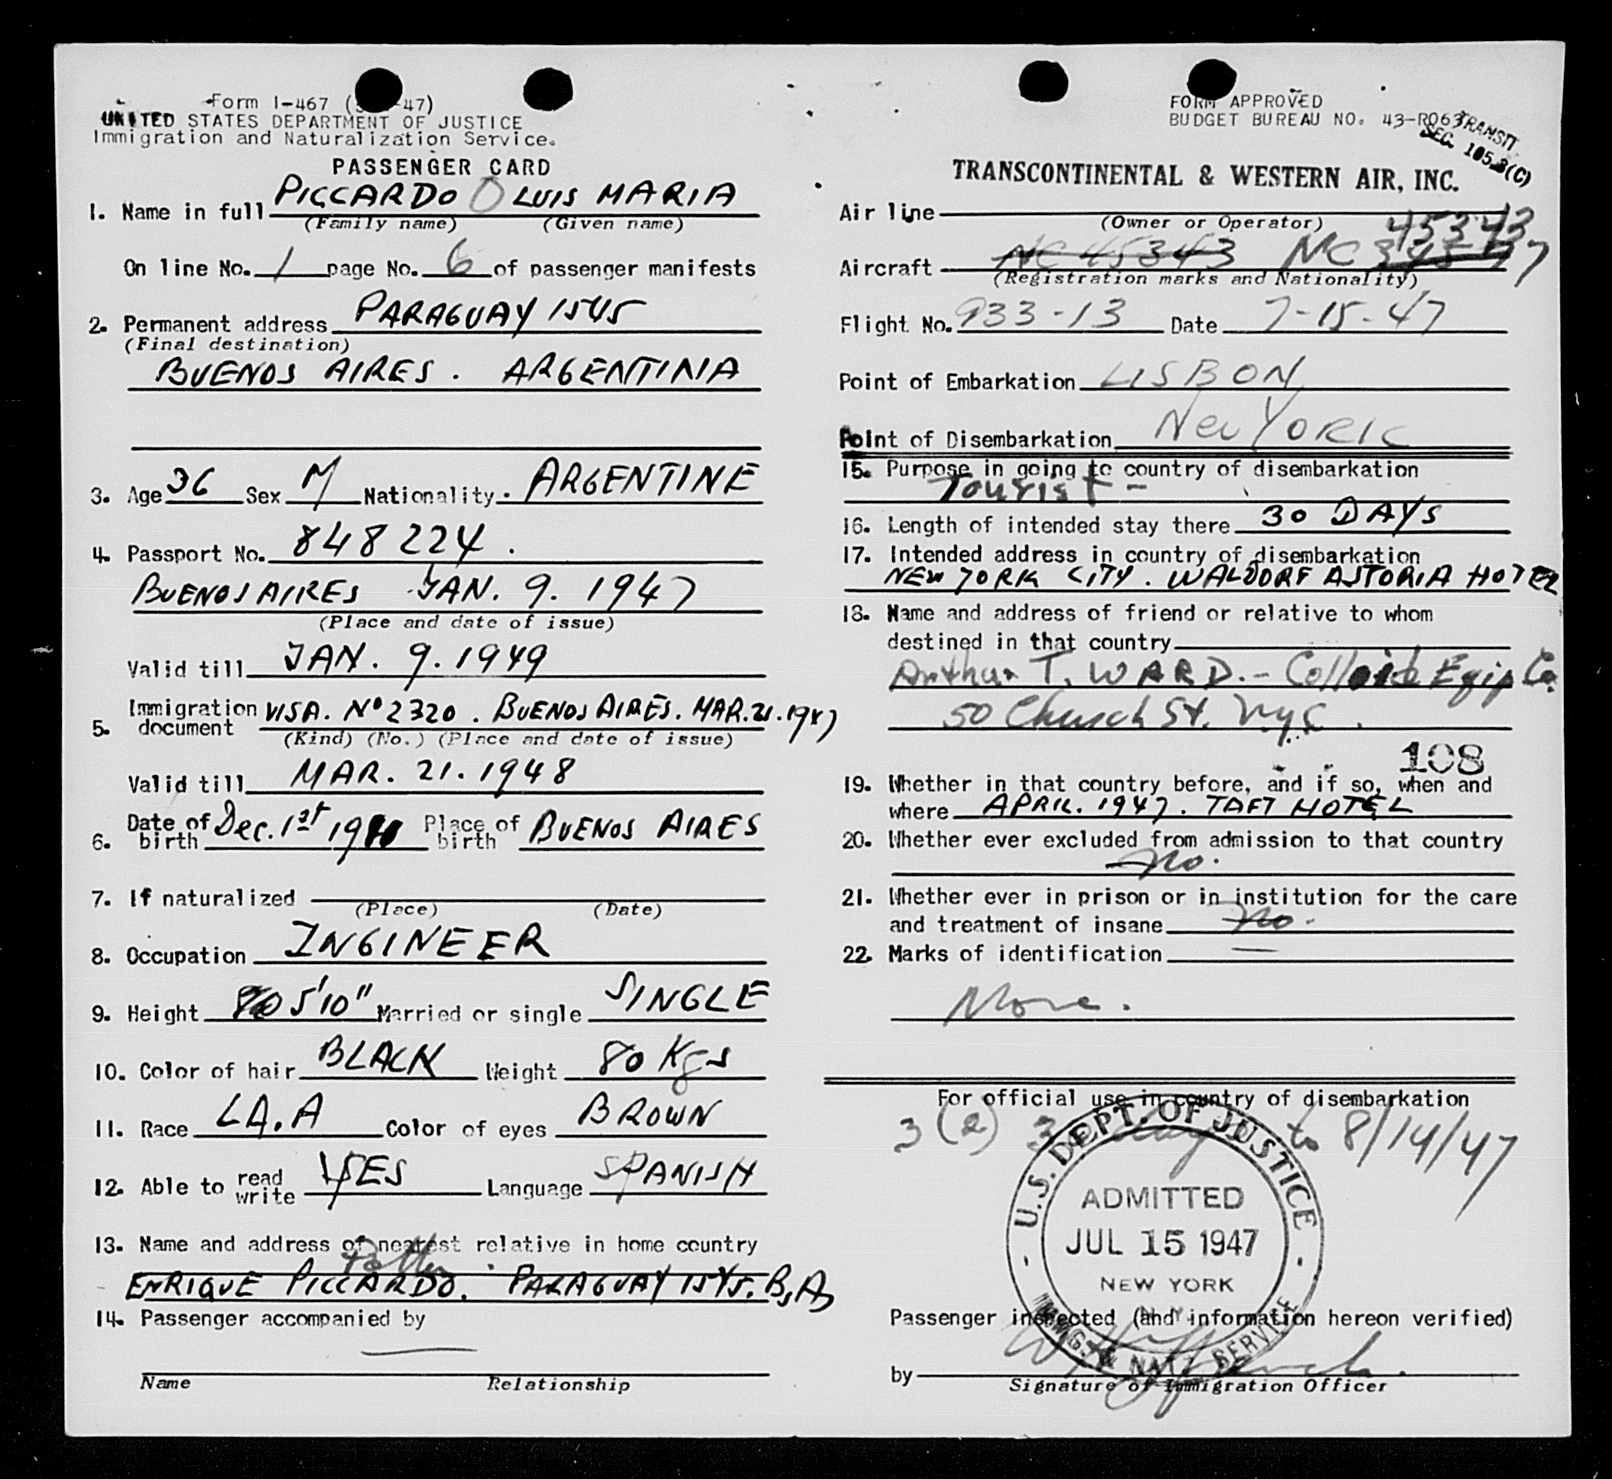 Form I-467 ( -47)
UNITED STATES DEPARTMENT OF JUSTICE
Immigration and Naturalization Service.
PASSENGER CARD
1. Name in full PICCARDO LUIS MARIA
(Family name) (Given name)
On line No. 1 page No. 6 of passenger manifests
2. Permanent address PARAGUAY 1545
(Final destination)
BUENOS AIRES. ARGENTINA
3. Age 36 Sex M Nationality. ARGENTINE
4. Passport No. 848224.
BUENOS AIRES JAN. 9. 1947
(Place and date of issue)
Valid till JAN. 9. 1949
5. Immigration document VISA. Nº 2320. BUENOS AIRES. MAR. 21. 1947
(Kind) (No.) (Place and date of issue)
Valid till MAR. 21. 1948
6. Date of birth Dec. 1st 19 Place of birth BUENOS AIRES
7. If naturalized
(Place) (Date)
8. Occupation INGINEER
9. Height 5'10" Married or single SINGLE
10. Color of hair BLACK Weight 80 Kgs
11. Race LA.A Color of eyes BROWN
12. Able to read write YES Language SPANISH
13. Name and address of nearest relative in home country
ENRIQUE PICCARDO. PARAGUAY 1545. B,A,
14. Passenger accompanied by
Name Relationship
FORM APPROVED
BUDGET BUREAU NO. 43-R063
TRANSIT
SEC. 105.3(C)
TRANSCONTINENTAL & WESTERN AIR, INC.
Air line
(Owner or Operator)
45343
Aircraft NC 45343 NC
(Registration marks and Nationality)
Flight No. 933-13 Date 7-15-47
Point of Embarkation LISBON
Point of Disembarkation New YORK
15. Purpose in going to country of disembarkation
Tourist -
16. Length of intended stay there 30 DAYS
17. Intended address in country of disembarkation
NEW YORK CITY. WALDORF ASTORIA HOTEL
18. Name and address of friend or relative to whom
destined in that country
Arthur T. WARD. - Colloid Egip Co.
50 Church St. NYC.
108
19. Whether in that country before, and if so, when and
where APRIL. 1947. TAFT HOTEL
20. Whether ever excluded from admission to that country
No.
21. Whether ever in prison or in institution for the care
and treatment of insane No.
22. Marks of identification
None.
For official use in country of disembarkation
3(2) 30 days to 8/14/47
U.S. DEPT. OF JUSTICE
ADMITTED
JUL 15 1947
NEW YORK
N.Y.
IMMIG. & NATZ. SERVICE
Passenger inspected (and information hereon verified)
by
Signature of Immigration Officer